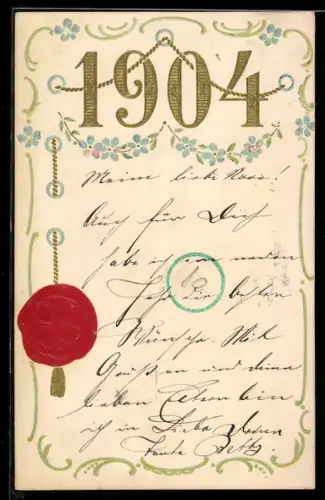 1904
Meine liebe Rosa!
Auch für Dich
habe ich zum neuen
Jahr die besten
10
Wünsche. Mit
Grüßen und deine
lieben Eltern bin
ich in Liebe Deine
Tante Betty.